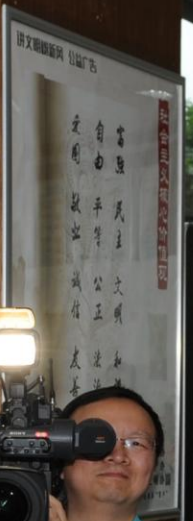 讲文明树新风 公益广告
社会主义核心价值观
富强 民主 文明 和谐
自由 平等 公正 法治
爱国 敬业 诚信 友善